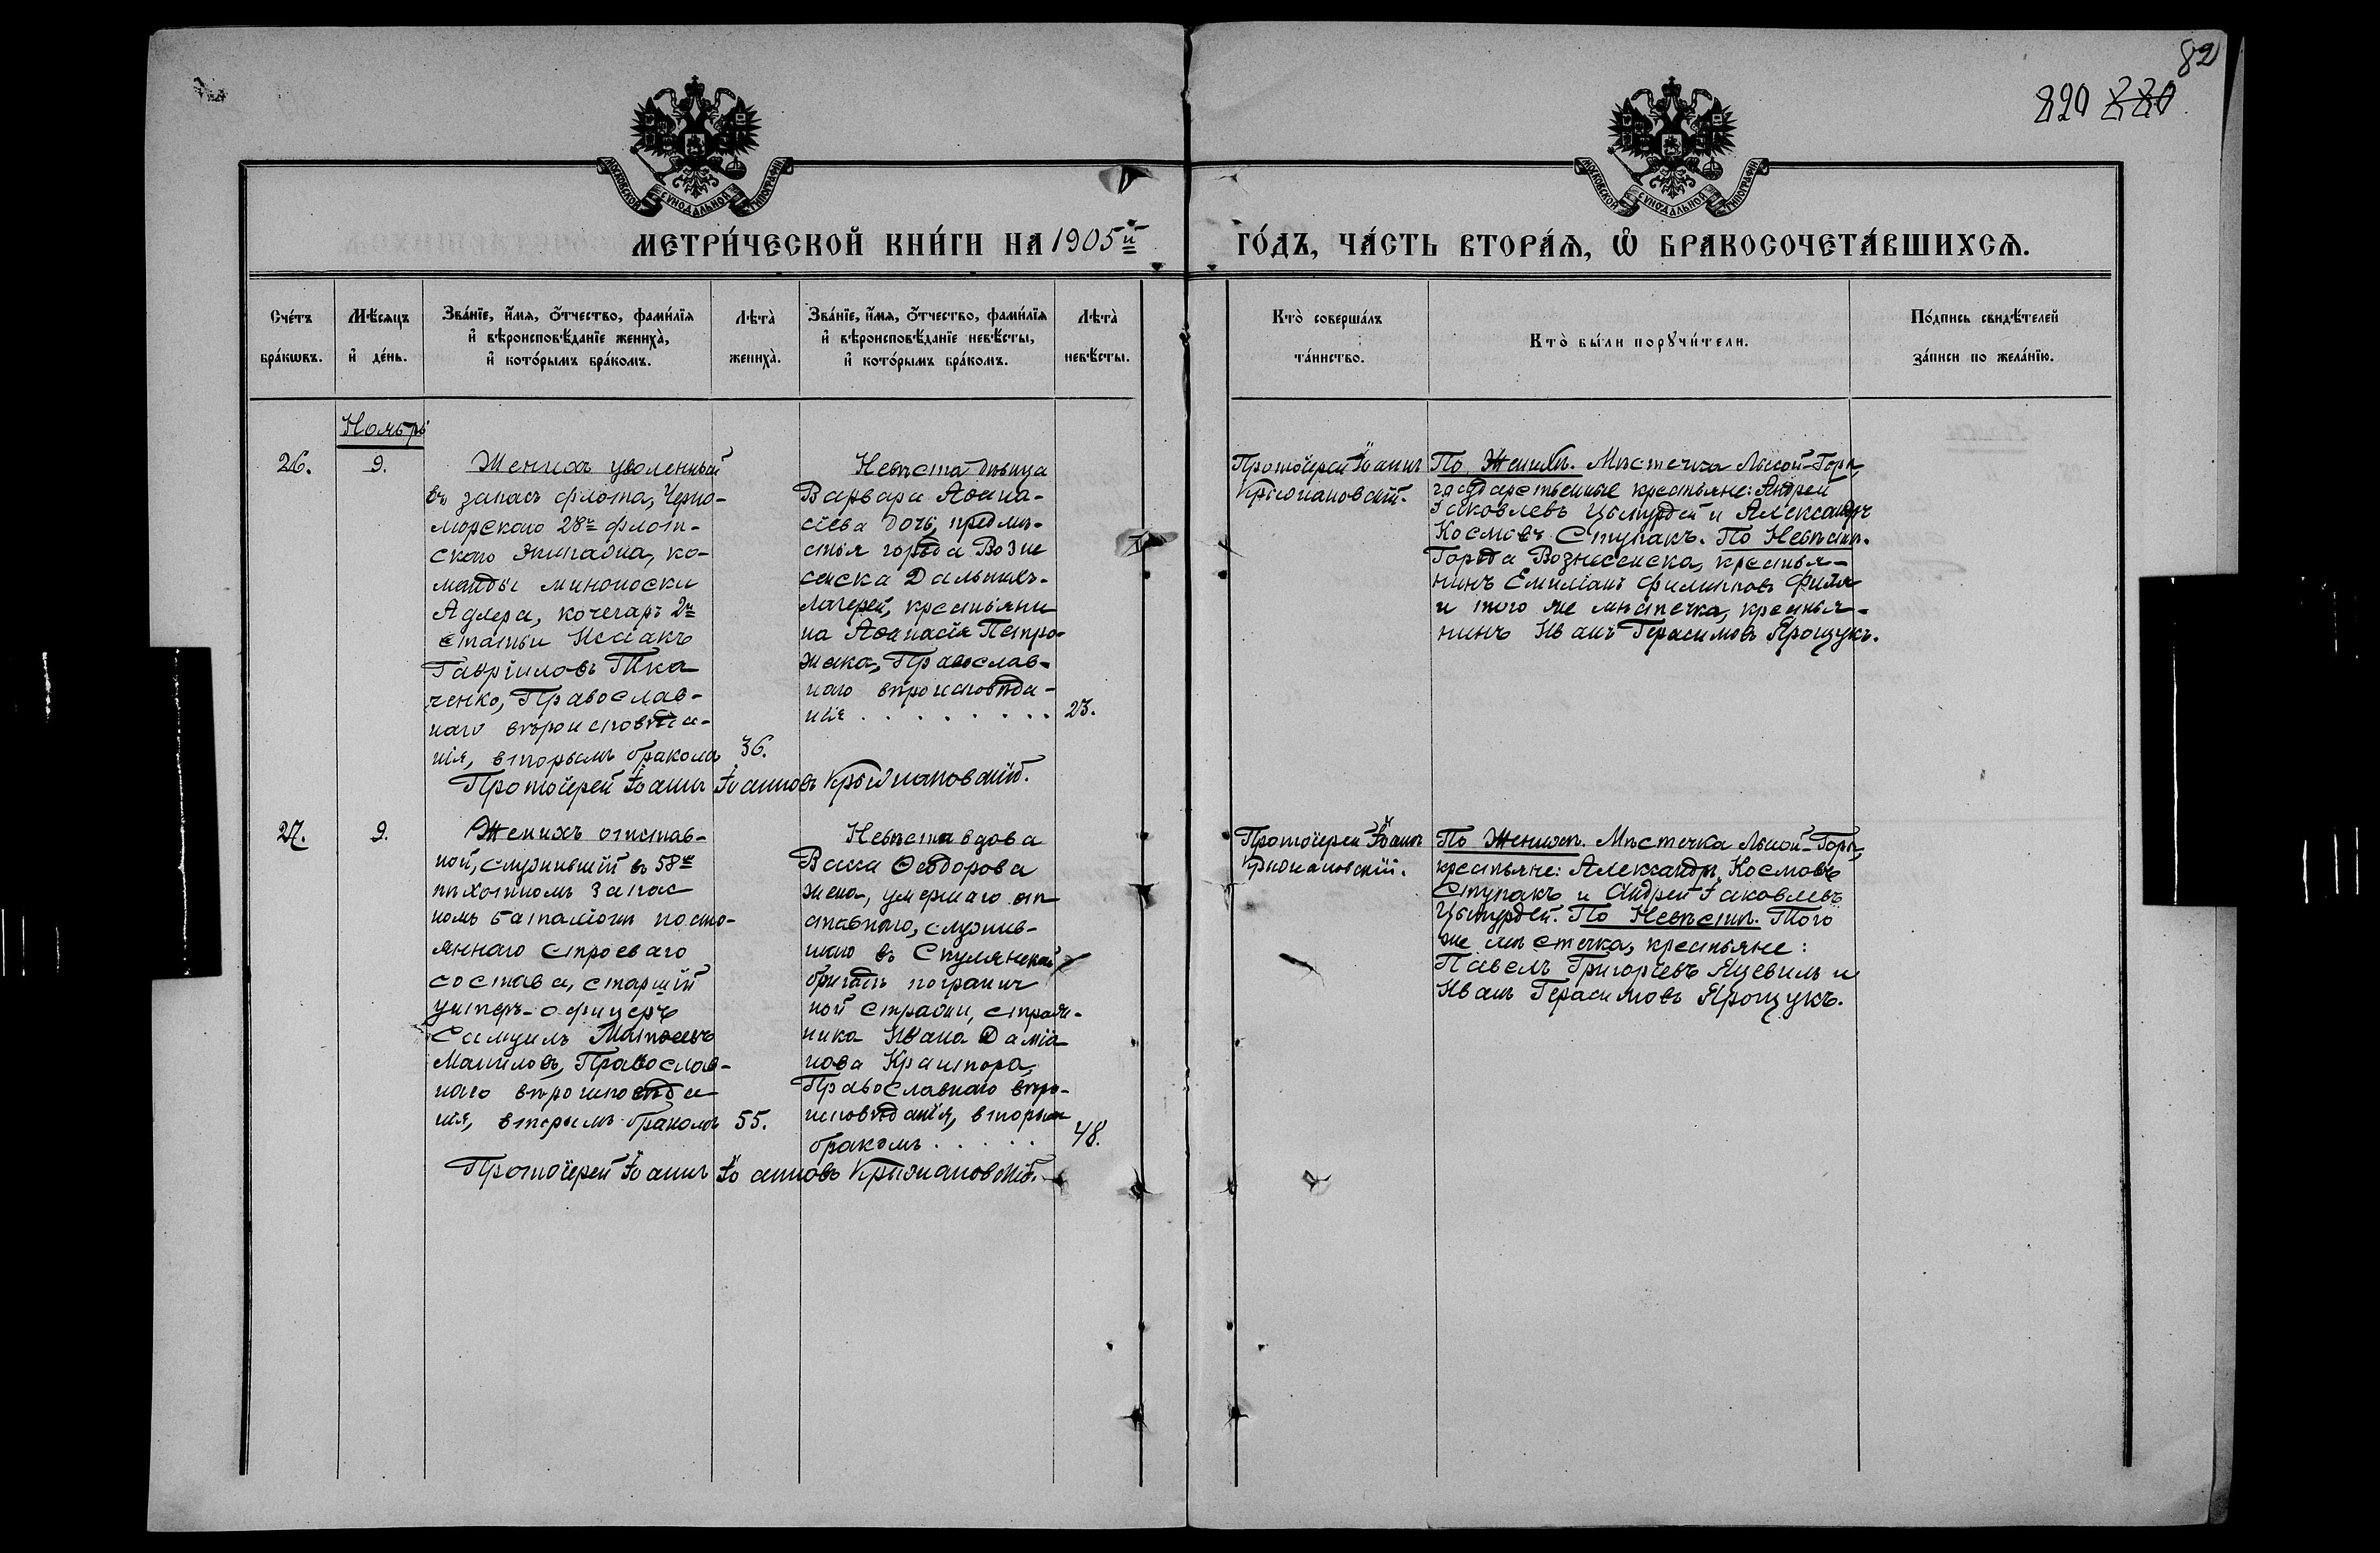 82
820 220
МОСКОВСКОЙ СУНОДАЛЬНОЙ ТИПОГРАФІИ
МОСКОВСКОЙ СУНОДАЛЬНОЙ ТИПОГРАФІИ
МЕТРИ́ЧЕСКОЙ КНИ́ГИ НА 1905й ГО́ДЪ, ЧА́СТЬ ВТОРА́Я, Ѽ БРАКОСОЧЕТА́ВШИХСЯ.
Сче́тъ
бра́кѡвъ.
Мѣ́сяцъ
и҆ де́нь.
Зва́нїе, и҆́мя, ѻ҆́тчество, фами́лїя
и҆ вѣроисповѣ́данїе жениха̀,
и҆ кото́рымъ бра́комъ.
Лѣта̀
жениха̀.
Зва́нїе, и҆́мя, ѻ҆́тчество, фами́лїя
и҆ вѣроисповѣ́данїе невѣ́сты,
и҆ кото́рымъ бра́комъ.
Лѣта̀
невѣ́сты.
Кто̀ соверша́лъ
та́инство.
Кто̀ бы́ли порꙋчи́тели.
По́дпись свидѣ́телей
за́писи по жела́нїю.
Ноябрь
26.
9.
Женихъ уволенный
въ запасъ флота, Черно-
морскаго 28го флот-
скаго экипажа, ко-
манды миноноски
Адлера, кочегаръ 2й
статьи Исаакъ
Гавріиловъ Тка
ченко, Православ-
наго вѣроисповѣда-
нія, вторымъ бракомъ
36.
Невѣста дѣвица
Варвара Аѳана-
сіева дочь, предмѣ-
стья города Возне
сенска Дальнихъ-
Лагерей, крестьяни
на Аѳанасія Петро-
жака, Православ-
наго вѣроисповѣда-
нія . . . . . . . .
23.
Протоіерей Іоаннъ Іоанновъ Крыжановскій.
Протоіерей Іоаннъ
Крыжановскій.
По Женихѣ. Мѣстечка Лысой-Горы,
государственные крестьяне: Андрей
Іаковлевъ Цымурдей и Александръ
Космовъ Ступакъ. По Невѣстѣ.
Города Вознесенска, крестья-
нинъ Емиліанъ Филипповъ Филя
и того же мѣстечка, крестья-
нинъ Иванъ Герасимовъ Ярощукъ.
27.
9.
Женихъ отстав-
ной, служившій въ 58мъ
пѣхотномъ запас
номъ баталіонѣ посто-
яннаго строеваго
состава, старшій
унтеръ-офицеръ
Самуилъ Матѳеевъ
Маниловъ, Православ-
наго вѣроисповѣда-
нія, вторымъ бракомъ
55.
Невѣста вдова
Васса Ѳеодорова
жена, умершаго от-
ставнаго, служив-
шаго въ Скулянской
бригадѣ погранич
ной стражи, страж-
ника Ивана Даміа
нова Крантора,
Православнаго вѣро-
исповѣданія, вторымъ
бракомъ . . . . .
48.
Протоіерей Іоаннъ Іоанновъ Крыжановскій.
Протоіерей Іоаннъ
Крыжановскій.
По Женихѣ. Мѣстечка Лысой-Горы,
крестьяне: Александръ Космовъ
Ступакъ и Андрей Іаковлевъ
Цымурдей. По Невѣстѣ. Того
же мѣстечка, крестьяне:
Павелъ Григорьевъ Яцевилъ и
Иванъ Герасимовъ Ярощукъ.